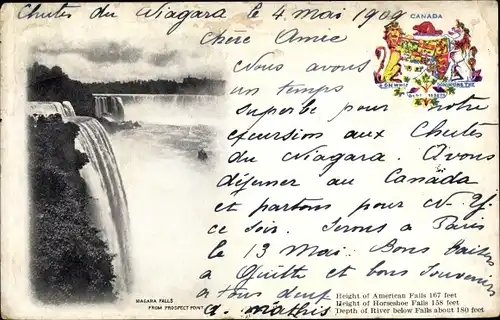 Chutes du Niagara le 4 Mai 1909
CANADA
Chère Amie
Nous avons
un temps
superbe pour notre
excursion aux Chutes
du Niagara. Avons
déjeuner au Canada
et partons pour N.Y.
ce soir. Serons à Paris
le 13 Mai. Bons baisers
a et bons souvenirs
a tous deux
a. Mathis
NIAGARA FALLS
FROM PROSPECT POINT
Height of American Falls 167 feet
Height of Horseshoe Falls 158 feet
Depth of River below Falls about 180 feet